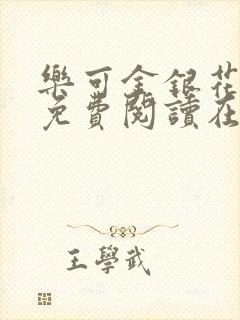 樂可金銀花
免費閱讀在
王學武